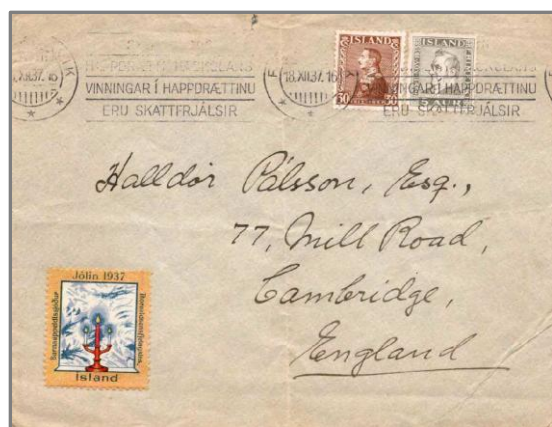 HAPPDRÆTTI HÁSKÓLANS
VINNINGAR Í HAPPDRÆTTINU
ERU SKATTFRJÁLSIR
18.XII.37. 16
ÍSLAND
30 30
ÍSLAND
VINNINGAR Í HAPPDRÆTTINU
ERU SKATTFRJÁLSIR
Halldór Pálsson, Esq.,
77, Mill Road,
Cambridge,
England
Jólin 1937
Ísland